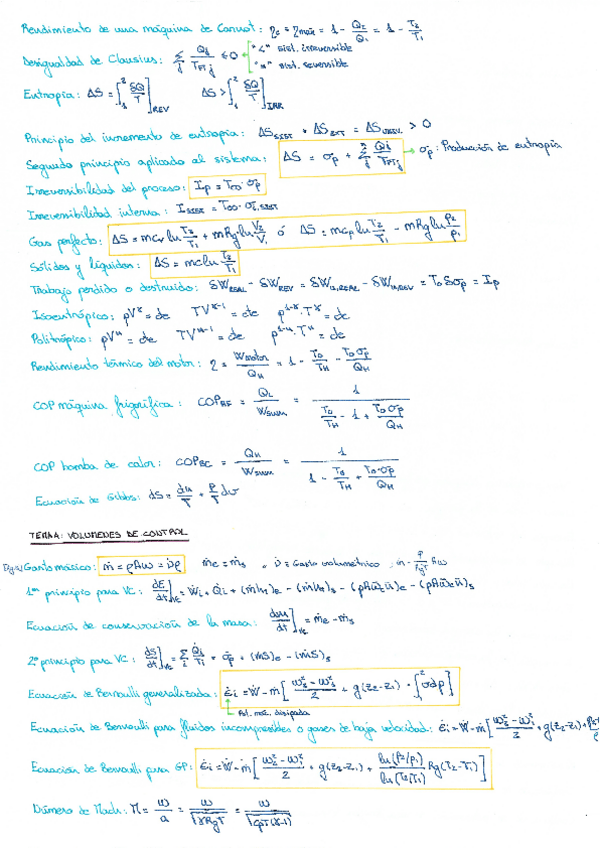 Rendimiento de una máquina de Carnot: η_c = η_máx = 1 - Q₂/Q₁ = 1 - T₂/T₁
Desigualdad de Clausius: Σ_j Q_j/T_FTj ≤ 0 "<" sist. irreversible
"=" sist. reversible
Entropía: ΔS = [∫₁² δQ/T]_REV ΔS > [∫₁² δQ/T]_IRR
Principio del incremento de entropía: ΔS_SIST + ΔS_EXT = ΔS_UNIV. > 0
Segundo principio aplicado al sistema: ΔS = σ_p + Σ Q_j/T_FTj → σ_p: Producción de entropía
Irreversibilidad del proceso: I_p = T_∞·σ_p
Irreversibilidad interna: I_SIST = T_∞·σ_SIST
Gas perfecto: ΔS = mc_v ln T₂/T₁ + mRg ln V₂/V₁ ó ΔS = mc_p ln T₂/T₁ - mRg ln P₂/P₁
Sólidos y líquidos: ΔS = mc ln T₂/T₁
Trabajo perdido o destruido: δW_REAL - δW_REV = δW_u,REAL - δW_u,REV = T₀δσ_p = I_p
Isoentrópico: pV^γ = cte TV^(γ-1) = cte p^(1-γ)·T^γ = cte
Politrópico: pV^n = cte TV^(n-1) = cte p^(1-n)·T^n = cte
Rendimiento térmico del motor: η = W_motor/Q_H = 1 - T₀/T_H - T₀σ_p/Q_H
COP máquina frigorífica: COP_RF = Q_L/W_SUM = 1/(T₀/T_H - 1 + T₀σ_p/Q_H)
COP bomba de calor: COP_BC = Q_H/W_SUM = 1/(1 - T₀/T_H + T₀·σ_p/Q_H)
Ecuación de Gibbs: dS = du/T + P/T dv
TEMA: VOLUMENES DE CONTROL
Gasto másico: ṁ = ρAω = V̇ρ ṁe = ṁs V̇ = Gasto volumétrico, ṁ = P/RgT Aω
1er principio para VC: dE/dt]_VC = Ẇi + Q̇i + (ṁh_t)e - (ṁh_t)s - (pAω̄e n̄)e - (pAω̄s n̄)s
Ecuación de conservación de la masa: dm/dt]_VC = ṁe - ṁs
2º principio para VC: dS/dt]_VC = Σ Q̇i/Ti + σ̇p + (ṁs)e - (ṁs)s
Ecuación de Bernoulli generalizada: ėi = Ẇ - ṁ[(ω₂² - ω₁²)/2 + g(z₂-z₁) + ∫₁² vdp]
Pot. mec. disipada
Ecuación de Bernoulli para fluidos incompresibles o gases de baja velocidad: ėi = Ẇ - ṁ[(ω₂² - ω₁²)/2 + g(z₂-z₁) +
Ecuación de Bernoulli para GP: ėi = Ẇ - ṁ[(ω₂² - ω₁²)/2 + g(z₂-z₁) + ln(P₂/P₁)/ln(T₂/T₁) Rg(T₂-T₁)]
Número de Mach: M = ω/a = ω/√(γRgT) = ω/√(cpT(γ-1))